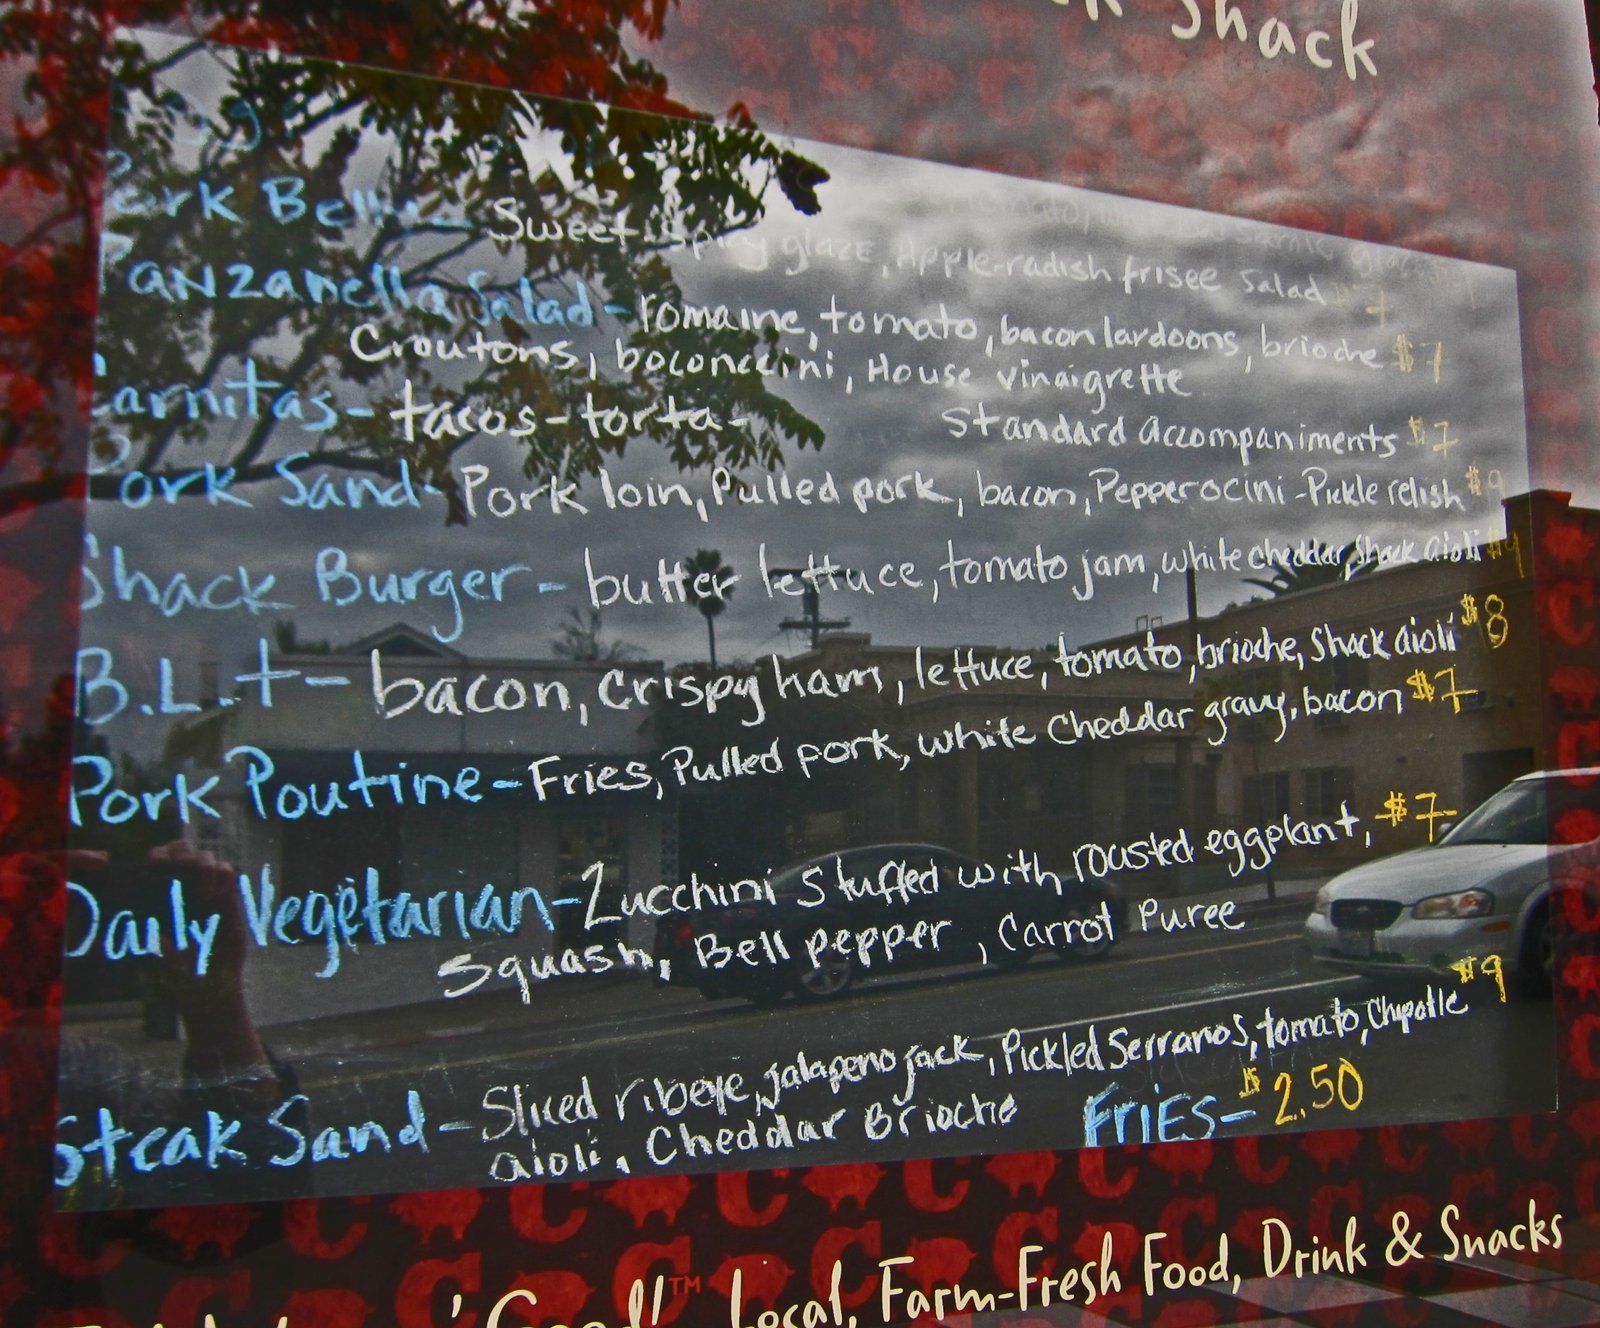 Shack
Pork Belly - Sweet Spicy glaze, Apple-radish frisee Salad
Panzanella Salad - romaine, tomato, bacon lardoons, brioche $7
Croutons, boconccini, House vinaigrette
Carnitas - tacos - torta - Standard accompaniments $7
Pork Sand - Pork loin, Pulled pork, bacon, Pepperocini - Pickle relish $9
Shack Burger - butter lettuce, tomato jam, white cheddar, Shack aioli $9
B.L.t - bacon, crispy ham, lettuce, tomato, brioche, Shack aioli $8
Pork Poutine - Fries, Pulled pork, white Cheddar gravy, bacon $7
Daily Vegetarian - Zucchini Stuffed with roasted eggplant, $7
Squash, Bell pepper, Carrot Puree
Steak Sand - Sliced ribeye, jalapeno jack, Pickled Serranos, tomato, Chipotle $9
aioli, Cheddar Brioche Fries - $2.50
Good!™ Local, Farm-Fresh Food, Drink & Snacks